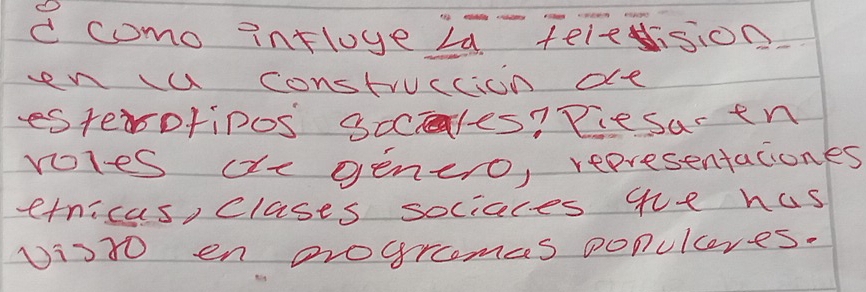 ¿como influye La television
en la construcción de
esterotipos sociales? Piesa en
roles de género, representaciones
etnicas, clases sociales que has
visto en programas populares.